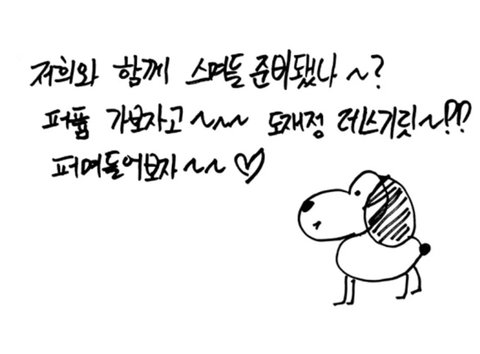 저희와 함께 스며들 준비됐나 ~?
퍼퓸 가보자고~~~ 도재정 레쓰기릿~!??
퍼며들어보자~~♡